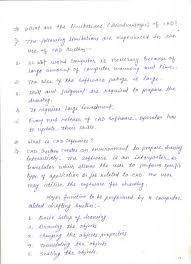 ① What are the limitations (disadvantages) of CAD?
⇒ The following limitations are experienced in the
use of CAD system:-
1. 32-bit word computer is necessary because of
large amount of computer memory and time.
2. The size of the software package is large.
3. Skill and judgment are required to prepare the
drawing.
4. It requires large investment.
5. Every new release of CAD software, operator has
to update their skills.
② What is CAD Software?
CAD system creates an environment to prepare drawing
interactively. The software is an interpreter or
translator which allows the user to perform specific
type of application or job related to CAD. The user
may utilise the software for drawing.
Major function to be performed by a computer
aided drafting system:-
1. Basic setup of drawing
2. Drawing the objects
3. Changing the object properties
4. Translating the objects
5. Scaling the objects